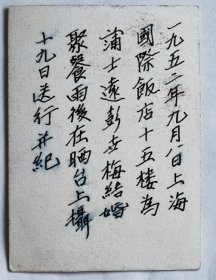 一九五二年九月八日上海
國際飯店十五楼為
蒲士遠彭安梅結婚
聚餐雨後在晒台上攝
十九日送行并紀